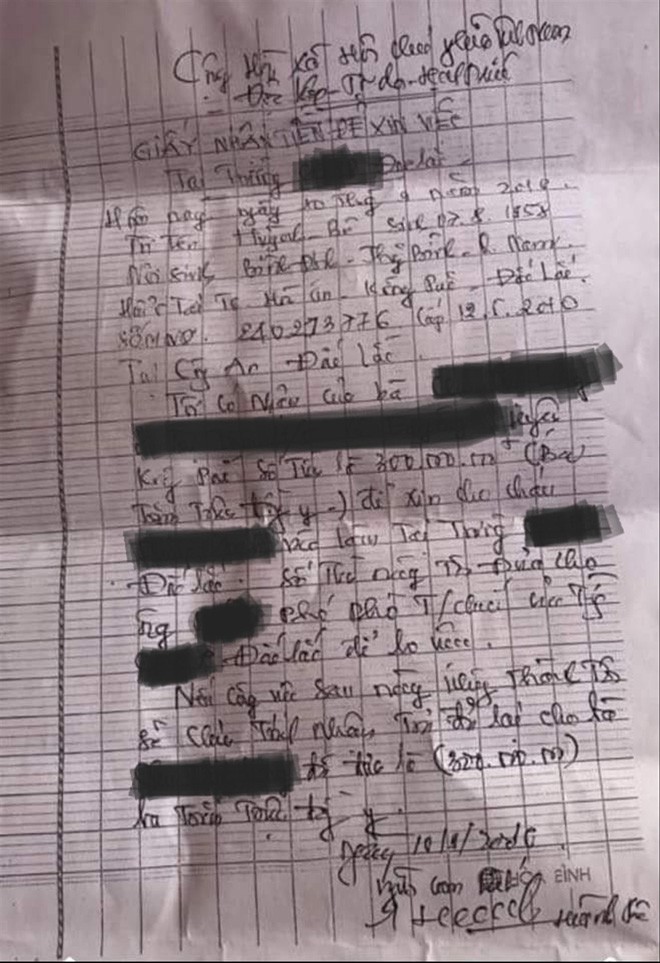 Cộng Hòa Xã Hội Chủ Nghĩa Việt Nam
Độc lập - Tự do - Hạnh Phúc
GIẤY NHẬN TIỀN ĐỂ XIN VIỆC
Tại Trường Đắc lắc -
Hôm nay ngày 10 tháng 9 năm
Tôi Tên Huỳnh Bê Sinh 07.8.1958
Nơi Sinh Bình Thăng Bình - Q. Nam.
Tại Krông Pắc - Đắc Lắc.
Số CMND. 240273776 Cấp 12.5.2010
Tại Công An Đắc Lắc.
Tôi có Nhận của bà
huyện
Krông Pắc Số Tiền là 300.000.000đ (Ba
Trăm Triệu đồng y -) để xin cho cháu
vào làm Tại Trường
Đắc lắc. Số Tiền này Tôi đưa cho
ông phó phó T/chức
Đắc lắc để lo việc.
Nếu công việc sau này không Thành Tôi
sẽ chịu Trách nhiệm Trả đủ lại cho bà
là (300.000.000)
ba Trăm Triệu đồng y.
Ngày 10/9/
ÓC BÌNH
Huỳnh Bê